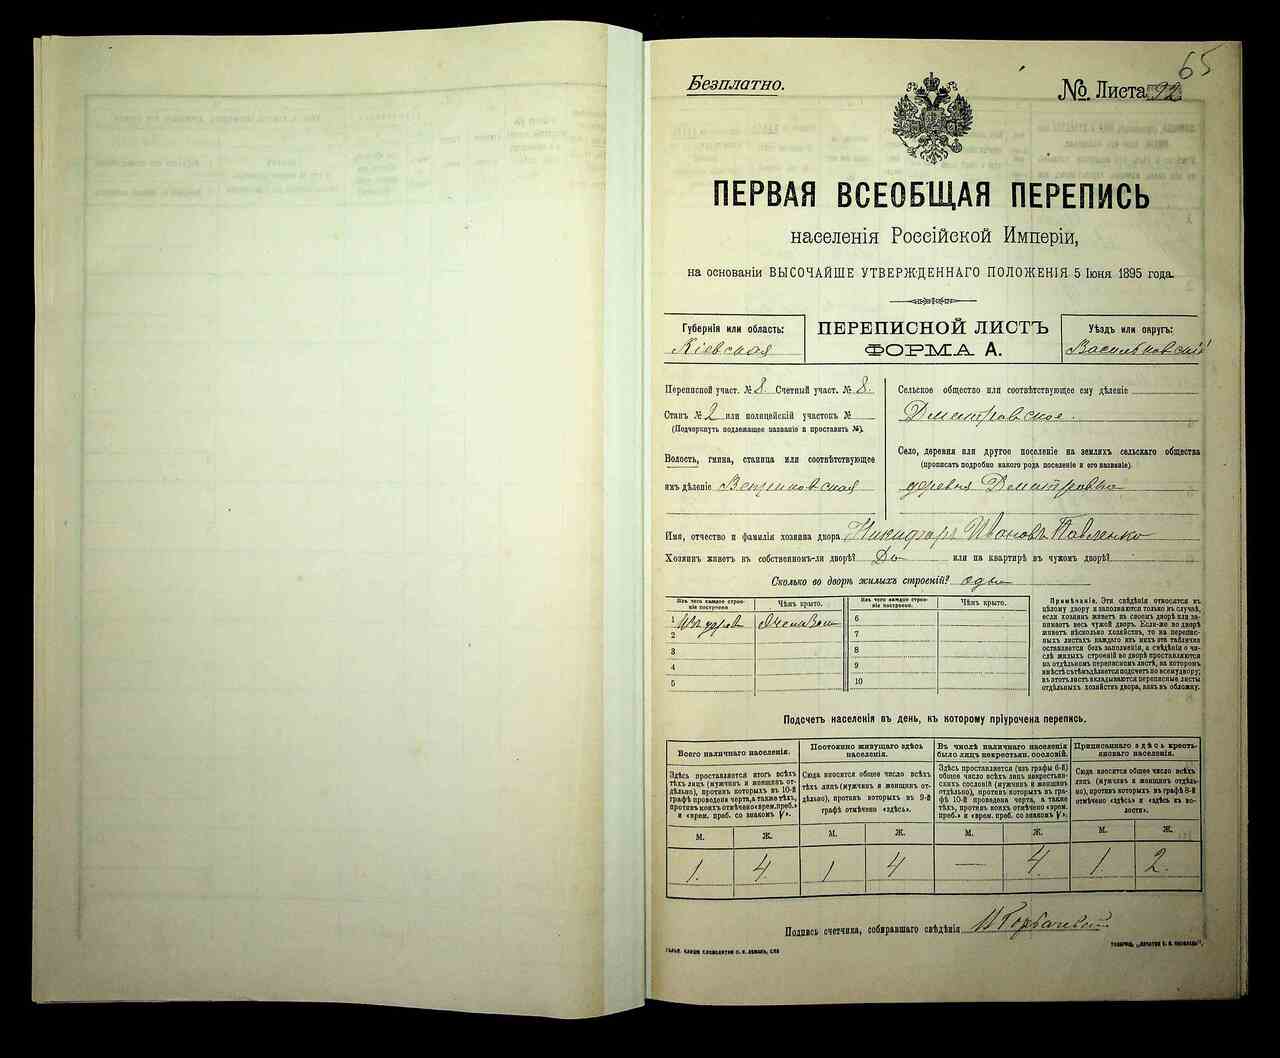 65
Безплатно.
№ Листа 92
ПЕРВАЯ ВСЕОБЩАЯ ПЕРЕПИСЬ
населенія Россійской Имперіи,
на основаніи ВЫСОЧАЙШЕ УТВЕРЖДЕННАГО ПОЛОЖЕНІЯ 5 Іюня 1895 года.
Губернія или область:
Кіевская
ПЕРЕПИСНОЙ ЛИСТЪ
ФОРМА А.
Уѣздъ или округъ:
Васильковскій
Переписной участ. № 8. Счетный участ. № 8.
Станъ № 2 или полицейскій участокъ №
(Подчеркнуть подлежащее названіе и проставить №).
Волость, гмина, станица или соотвѣтствующее
имъ дѣленіе
Сельское общество или соотвѣтствующее ему дѣленіе
Дмитровское.
Село, деревня или другое поселеніе на земляхъ сельскаго общества
(прописать подробно какого рода поселеніе и его названіе).
деревня Дмитровка
Имя, отчество и фамилія хозяина двора Никифоръ Ивановъ Павленко
Хозяинъ живетъ въ собственномъ-ли дворѣ? Да или на квартирѣ въ чужомъ дворѣ?
Сколько во дворѣ жилыхъ строеній? одно
Изъ чего каждое строеніе построено
Чѣмъ крыто.
Изъ чего каждое строеніе построено.
Чѣмъ крыто.
1 Изъ дерев
2
3
4
5
6
7
8
9
10
Примѣчаніе. Эти свѣдѣнія относятся къ
цѣлому двору и заполняются только въ случаѣ,
если хозяинъ живетъ въ своемъ дворѣ или занимаетъ
весь чужой дворъ. Если-же во дворѣ
живетъ нѣсколько хозяйствъ, то на переписныхъ
листахъ каждаго изъ нихъ эта табличка
оставляется безъ заполненія, а свѣдѣнія о числѣ
жилыхъ строеній во дворѣ проставляются
на отдѣльномъ переписномъ листѣ, на которомъ
вмѣстѣ съ тѣмъ дѣлается подсчетъ по всему двору;
въ этотъ листъ вкладываются переписные листы
отдѣльныхъ хозяйствъ двора, какъ въ обложку.
Подсчетъ населенія въ день, къ которому пріурочена перепись.
Всего наличнаго населенія.
Здѣсь проставляется итогъ всѣхъ
тѣхъ лицъ (мужчинъ и женщинъ отдѣльно),
противъ которыхъ въ 10-й
графѣ проведена черта, а также тѣхъ,
противъ коихъ отмѣчено «врем. преб.»
и «врем. преб. со знакомъ V».
Постоянно живущаго здѣсь
населенія.
Сюда вносится общее число всѣхъ
тѣхъ лицъ (мужчинъ и женщинъ отдѣльно),
противъ которыхъ въ 9-й
графѣ отмѣчено «здѣсь».
Въ числѣ наличнаго населенія
было лицъ некрестьян. сословій.
Здѣсь проставляется (изъ графы 6-й)
общее число всѣхъ лицъ некрестьянскихъ
сословій (мужчинъ и женщинъ
отдѣльно), противъ которыхъ въ графѣ
10-й проведена черта, а также
тѣхъ, противъ коихъ отмѣчено «врем.
преб.» и «врем. преб. со знакомъ V».
Приписаннаго здѣсь крестьянскаго
населенія.
Сюда вносится общее число всѣхъ
лицъ (мужчинъ и женщинъ отдѣльно),
противъ которыхъ въ графѣ 8-й
отмѣчено «здѣсь» и «здѣсь къ волости».
М. Ж. М. Ж. М. Ж. М. Ж.
1. 4 1 4 — 4. 1. 2.
Подпись счетчика, собиравшаго свѣдѣнія